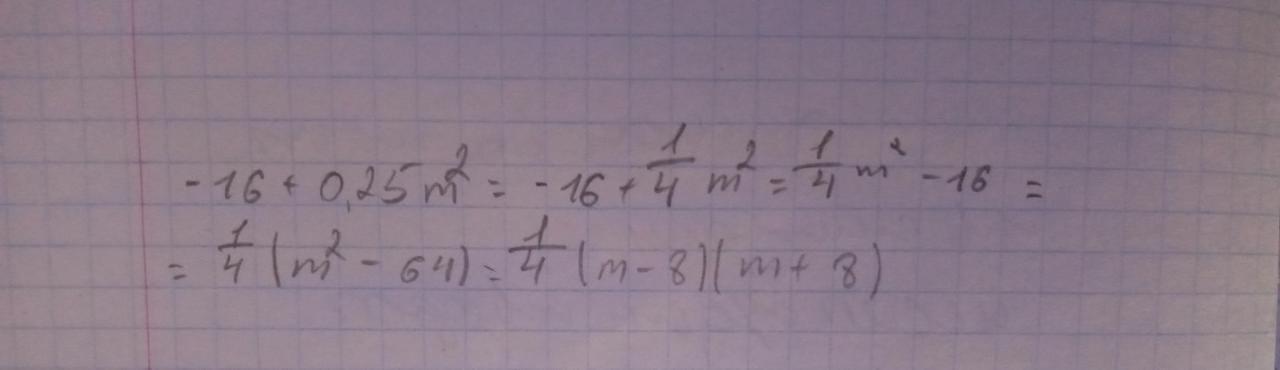 -16 + 0,25m² = -16 + 1/4 m² = 1/4 m² - 16 =
= 1/4 (m² - 64) = 1/4 (m - 8)(m + 8)